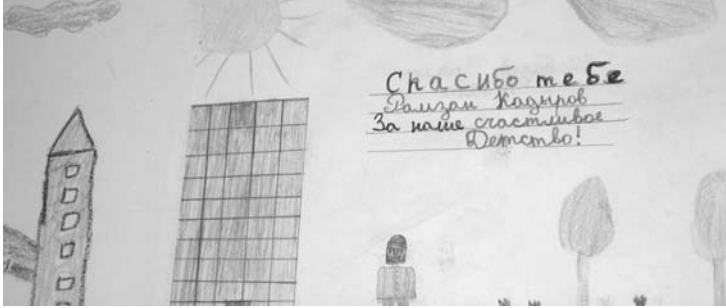 Спасибо тебе
Рамзан Кадыров
За наше счастливое
Детство!